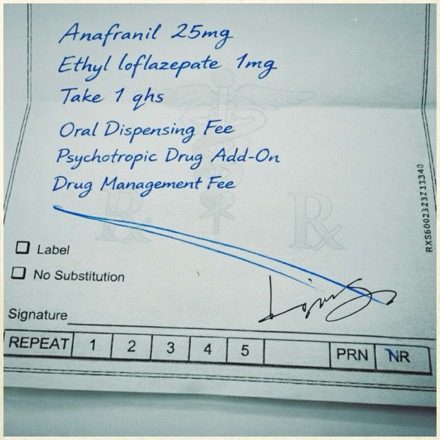 Anafranil 25mg
Ethyl loflazepate 1mg
Take 1 qhs
Oral Dispensing Fee
Psychotropic Drug Add-On
Drug Management Fee
Label
No Substitution
Signature
REPEAT 1 2 3 4 5 PRN NR
RXS6002323213340